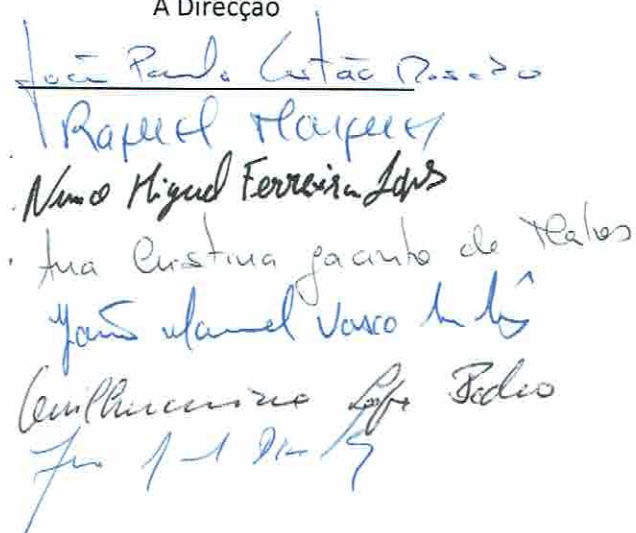 A Direcção
João Paulo Cristão
Raquel Marques
Nuno Miguel Ferreira Lopes
Ana Cristina Jacinto de Matos
João Manuel Vasco
Guilhermina Lopes Pedro